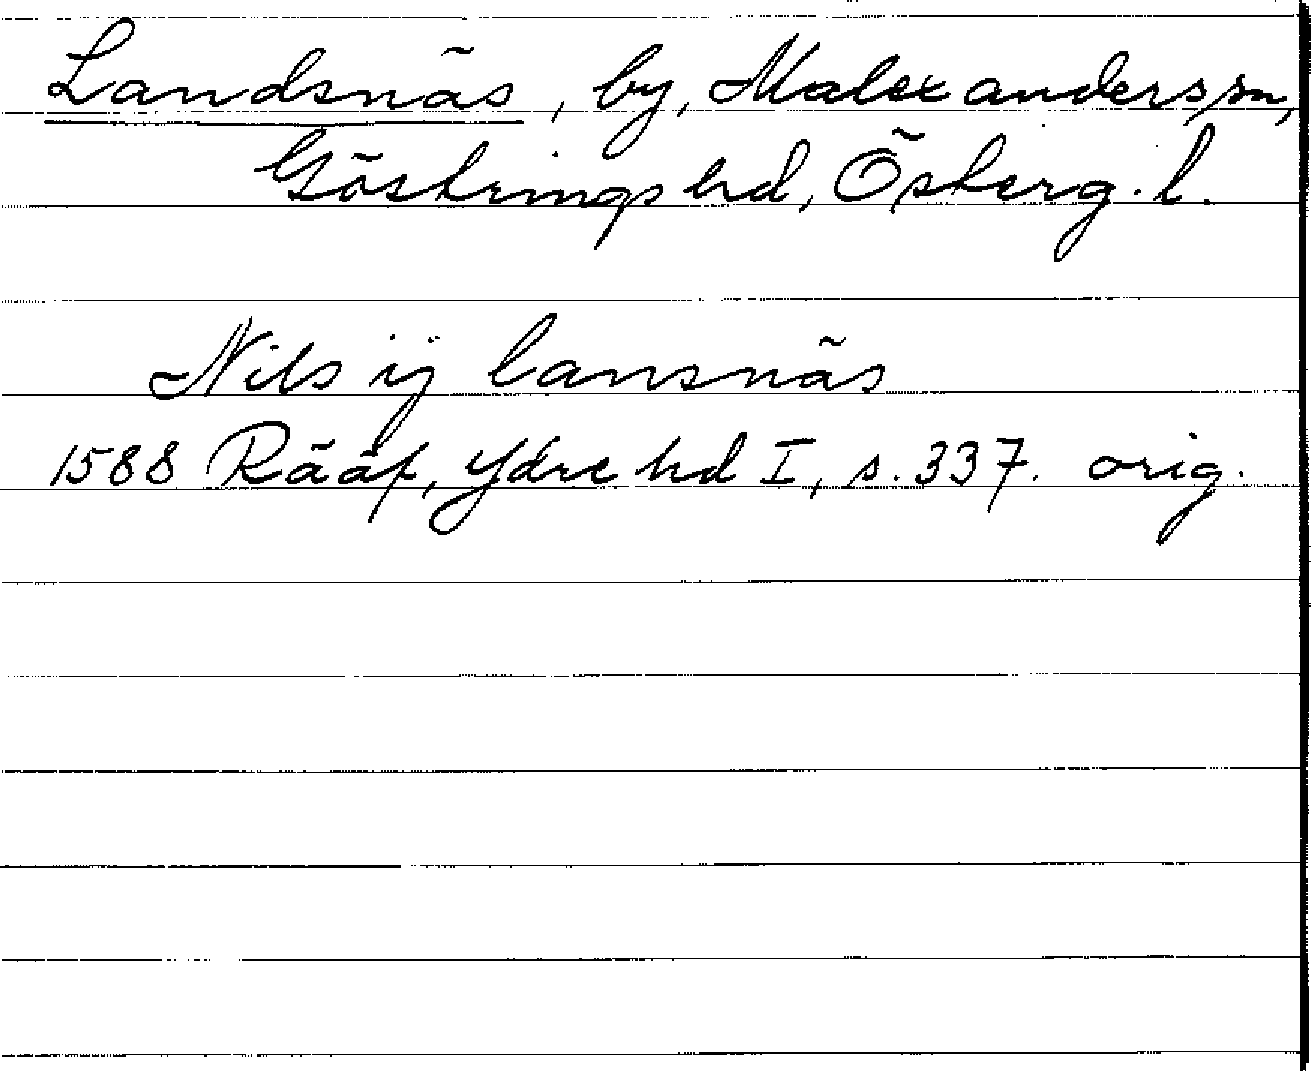 Landsnäs, by, Malexanders sn,
Göstrings hd, Österg. l.
Nils ij lansnäs
1588 Rääf, Ydre hd I, s. 337. orig.